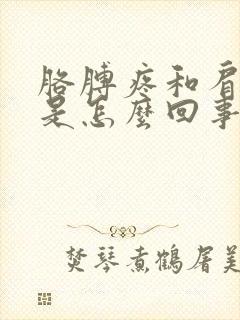 胳膊疼和肩
是怎麼回事
焚琴煮鶴屠美